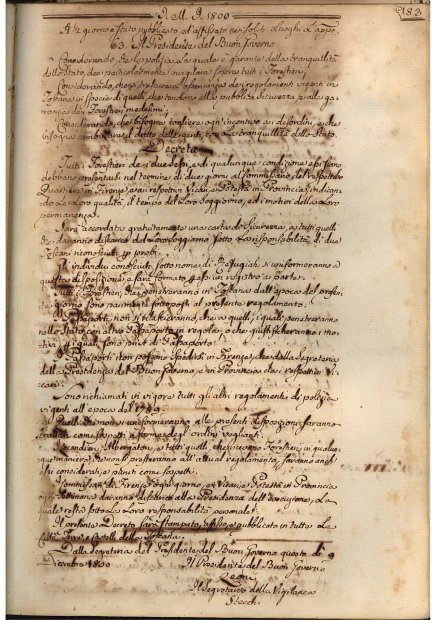 183
A. M. A. 1800
A 12 giorno è stato pubblicato, ed affisso nei soliti Luoghi L'appo
63. Il Presidente del Buon Governo
Considerando, che la polizia garante della tranquillità
dello Stato, deve particolarmente invigilare sopra tutti i Forestieri,
Considerando, che si trascura l'osservanza dei regolamenti vigenti in
Toscana in specie di quelli, che tendono alla pubblica sicurezza, e alla ga-
ranzia dei Forestieri medesimi;
Considerando, che bisogna togliere ogni incentivo ai disordini, e che
bisogna combinare il diritto delle genti, con La tranquillità dello Stato.
Decreta
Tutti i Forestieri de i due sessi, e di qualunque condizione essi siano
debbano presentarsi nel termine di due giorni al Commissario del respettivo
Quartiere in Firenze, e ai respettivi Vicari, e Potestà in Provincia, indican-
do Le Loro qualità, il tempo del Loro soggiorno, ed i motivi della Loro
permanenza.
Sarà accordata gratuitamente una carta di Sicurezza, a tutti quelli
che daranno discarico del Loro soggiorno sotto La responsabilità di due
Toscani riconosciuti p. probi.
Gl'individui conosciuti sotto nome di Refugiati si uniformeranno a
questa disposizione, e sarà formato di essi un registro a parte.
I Forestieri, che perverranno in Toscana dall'epoca del presente
giorno sono parimente sottoposti al presente regolamento.
I Passaporti non si rilasceranno, che a quelli, i quali perverranno
nello Stato con altro Passaporto in regola, o che giustificheranno i mo-
tivi p. i quali sono privi di Passaporto.
I Passaporti non possono spedirsi in Firenze, che dalla Segreteria
della Presidenza del Buon Governo, e in Provincia dai respettivi Vi-
cari.
Sono richiamati in vigore tutti gli altri regolamenti di polizia
vigenti all'epoca del 1799.
Quelli che non si uniformeranno alle presenti disposizioni saranno
trattati come sospetti a forma degli ordini veglianti.
I Locandieri, Albergatori, e tutti quelli, che ricevono Forestieri in qualun-
que maniera, che non si presteranno all'attual regolamento, saranno anch'
essi considerati, e puniti come sospetti.
I Commissari di Firenze ogni giorno, e i Vicari, e Potestà in Provincia
ogni Settimana daranno discarico alla Presidenza dell'esecuzione, La
quale resta sotto La Loro responsabilità personale.
Il presente Decreto sarà stampato, affisso, e pubblicato in tutte Le
Città, Terre, e Castelli della Toscana.
Dalla Segreteria del Presidente del Buon Governo questo dì 9
Dicembre 1800
Il Presidente del Buon Governo
Leoni
Il Segretario della Vigilanza
Stecchi